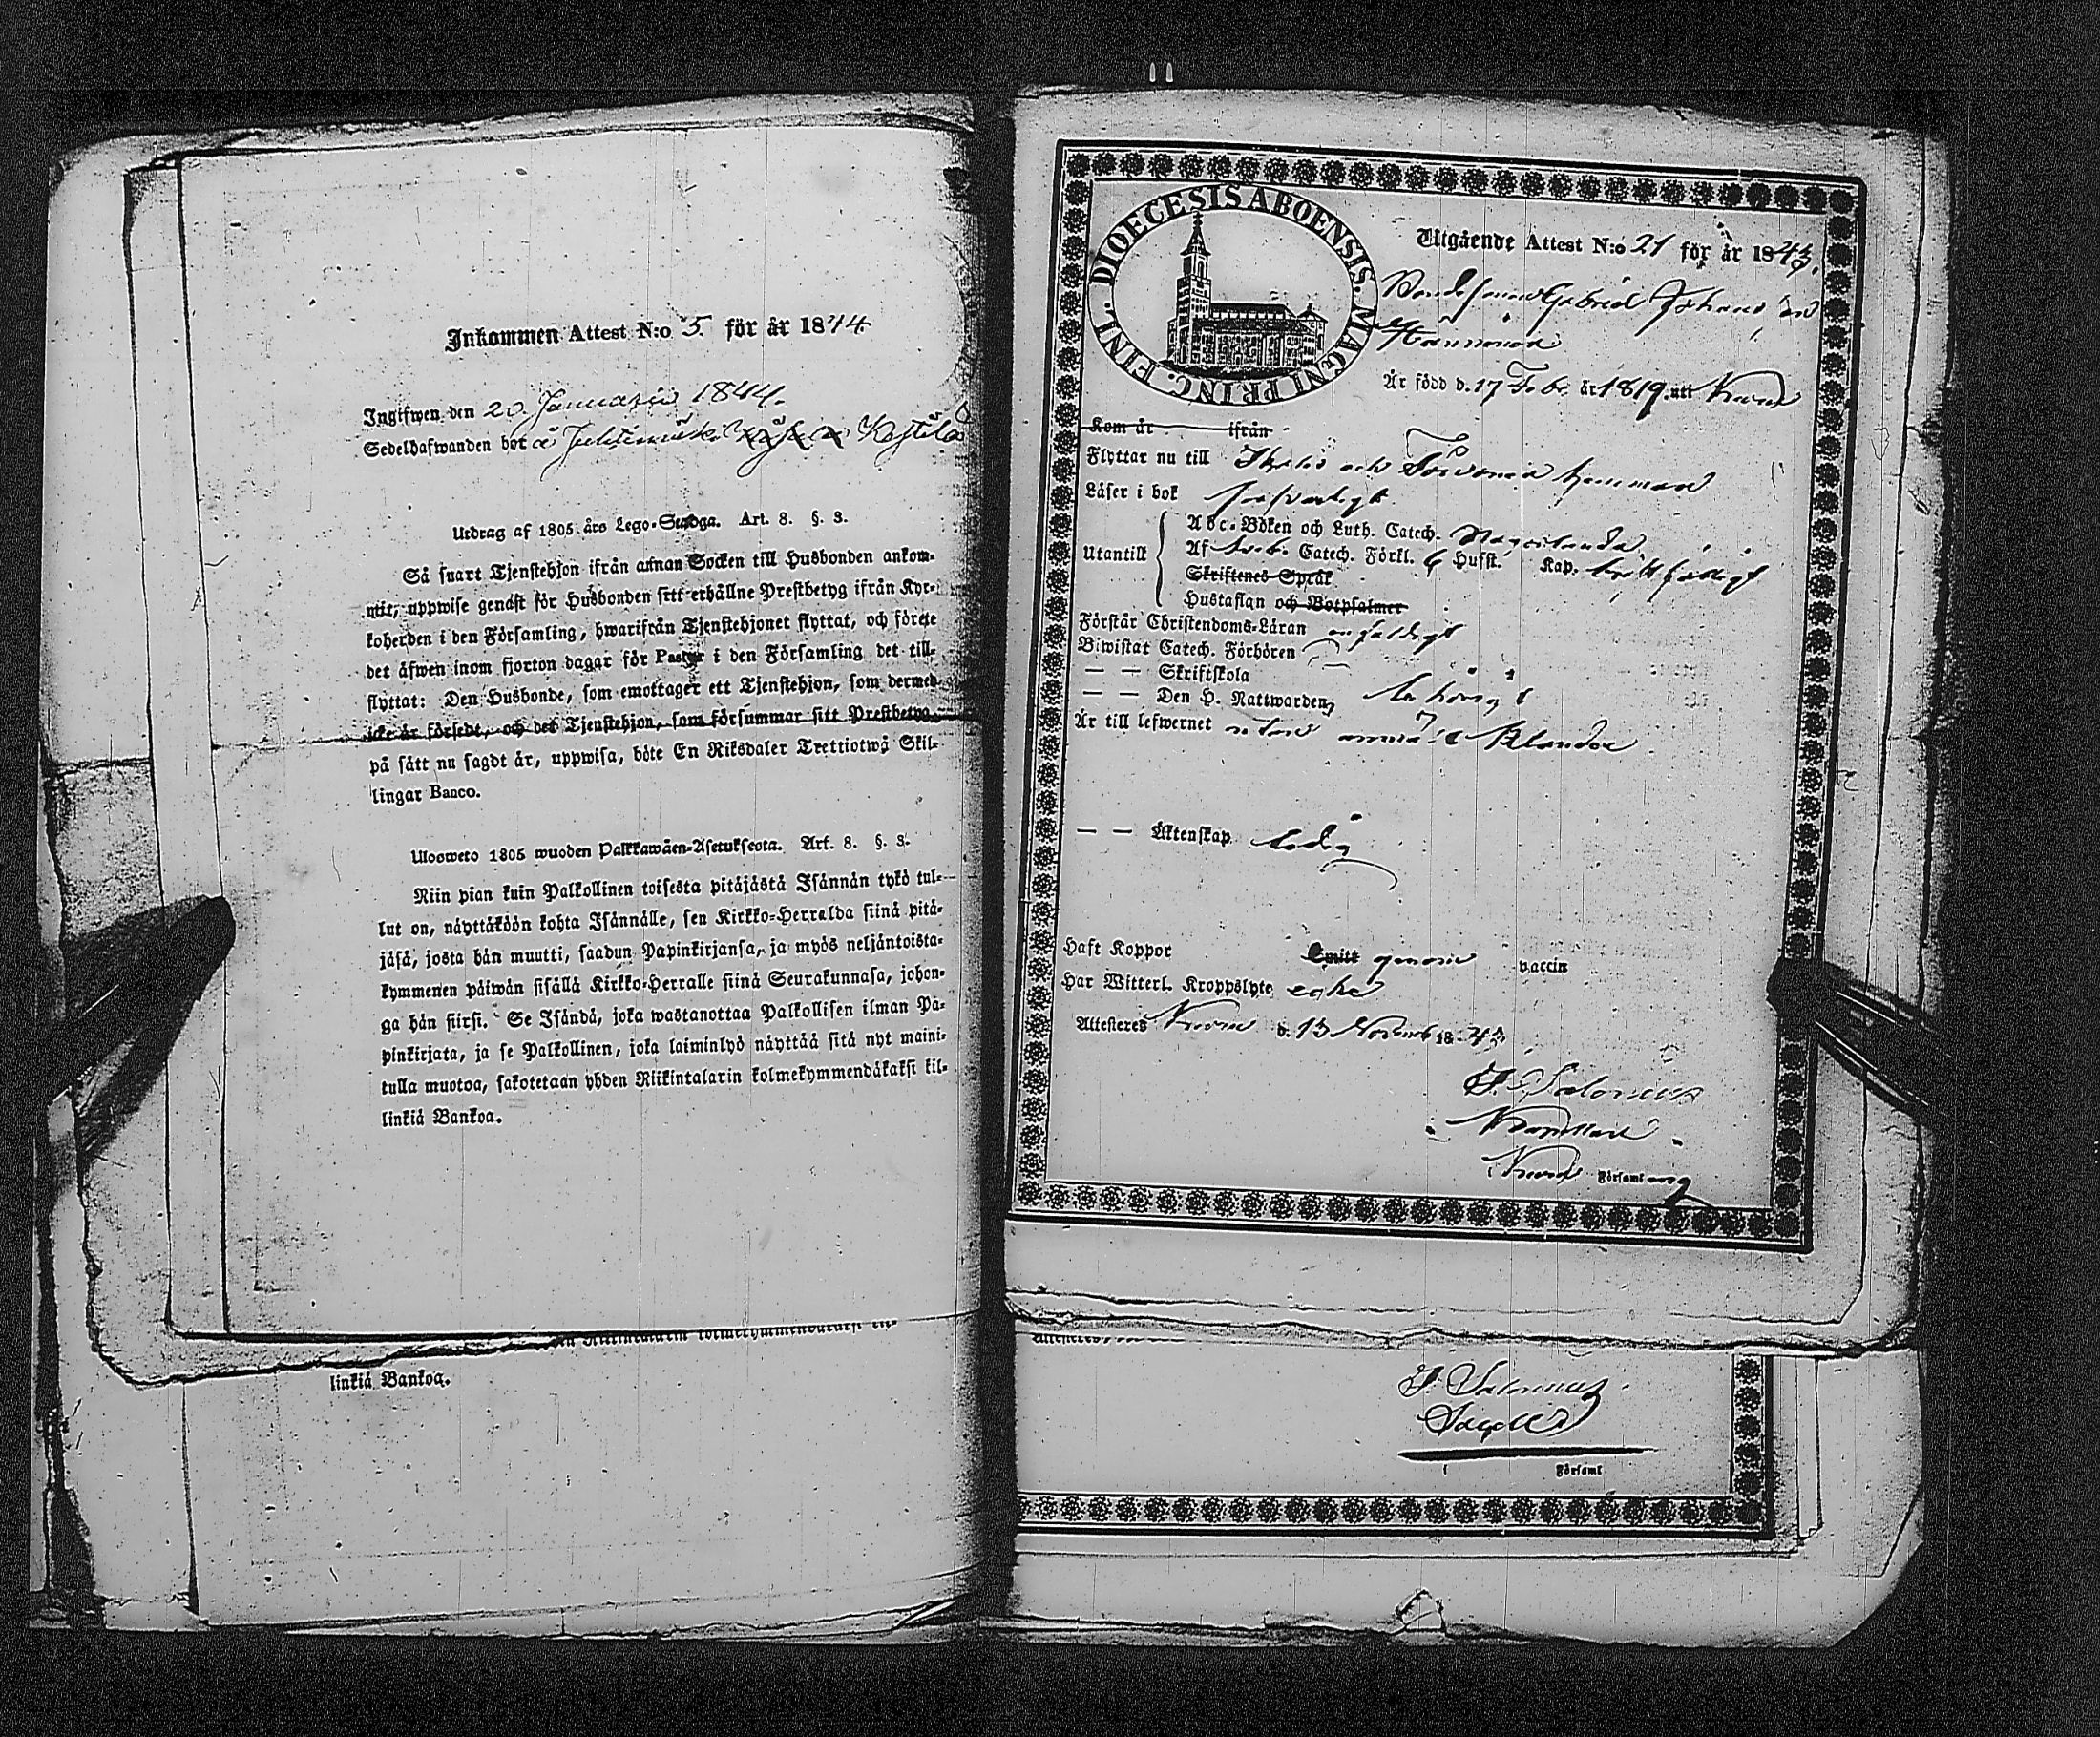 Inkommen Attest N:o 5. för år 1844.
Ingifwen den 20. Januarii 1844.
Sedelhafwanden bor å Kestilä
Utdrag af 1805 års Lego-Stadga. Art. 8. §. 3.
Så snart Tjenstehjon ifrån annan Socken till Husbonden ankom-
mit, uppwise genast för Husbonden sitt erhållne Prestbetyg ifrån Kyr-
koherden i den Församling, hwarifrån Tjenstehjonet flyttat, och förete
det äfwen inom fjorton dagar för Pastor i den Församling det till-
flyttat: Den Husbonde, som emottager ett Tjenstehjon, som dermed
icke är försedt, och det Tjenstehjon, som försummar sitt Prestbetyg,
på sått nu sagdt är, uppwisa, böte En Riksdaler Trettiotwå Skil-
lingar Banco.
Ulosweto 1805 wuoden Palkkawäen-Asetuksesta. Art. 8. §. 3.
Niin pian kuin Palkollinen toisesta pitäjästä Isännän tykö tul-
lut on, näyttäköön kohta Isännälle, sen Kirkko-Herralda siinä pitä-
jäsä, josta hän muutti, saadun Papinkirjansa, ja myös neljäntoista-
kymmenen päiwän sisällä Kirkko-Herralle siinä Seurakunnasa, johon-
ga hän siirsi. Se Isändä, joka wastanottaa Palkollisen ilman Pa-
pinkirjata, ja se Palkollinen, joka laiminlyö näyttää sitä nyt maini-
tulla muotoa, sakotetaan yhden Riikintalarin kolmekymmendäkaksi kil-
linkiä Bankoa.
linkiä Bankoa.
FINL. DIOECESIS ABOENSIS. MAGNI PRINC.
Utgående Attest N:o 21 för år 1843.
Bondesonen Gabriel Johansson
Är född d. 17 Febr. år 1819. att
Kom år ifrån
Flyttar nu till och hemman
Läser i bok försvarligt
Abc-Boken och Luth. Catech. Någorlunda
Utantill
Af Sveb. Catech. Förkl. 6 Hufst. Kap.
Skriftenes Språk
Hustaflan och Botpsalmer
Förstår Christendoms-Läran enfaldigt
Biwistat Catech. Förhören
— — Skriftskola
— — Den H. Nattwarden behörigt
Är till lefwernet utan
— — Äktenskap ledig
Haft Koppor Smitt genom vaccin
Har Witterl. Kroppslyte
Attesteras d. 13 Novemb. 1843.
Salonius
Församling
Salonius
i Församl